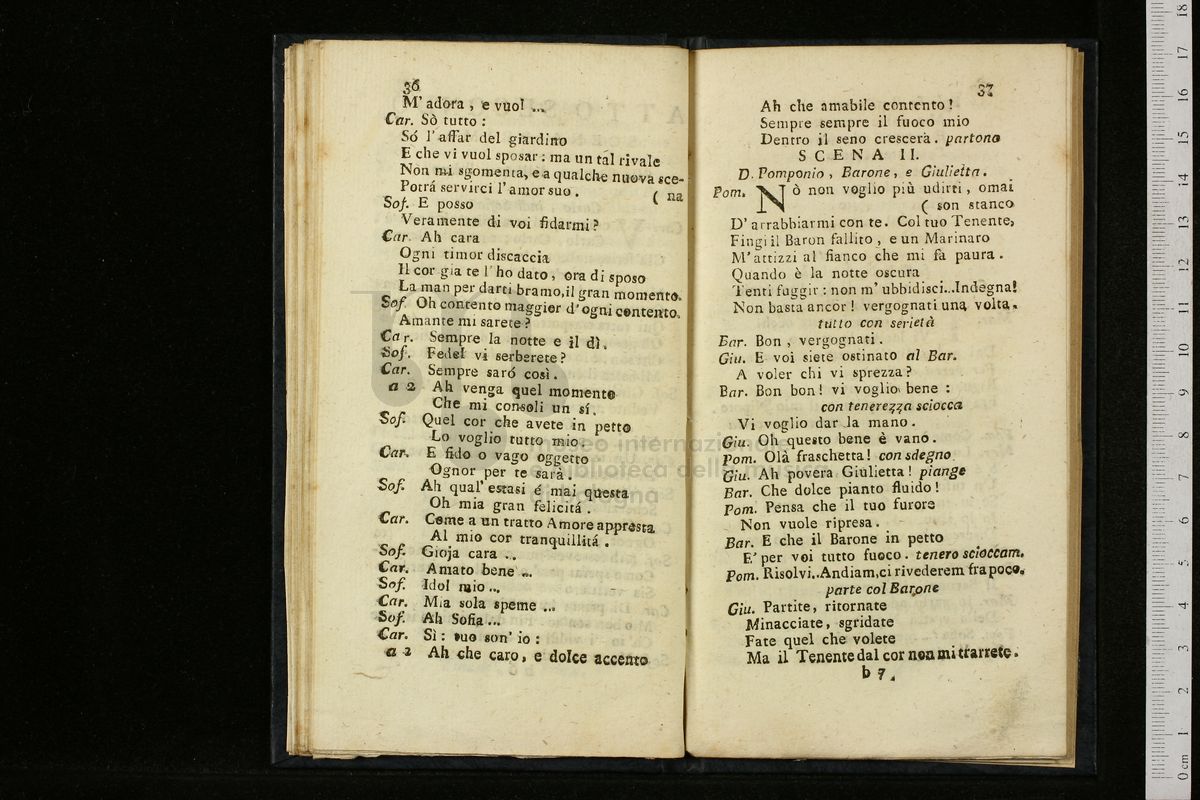 36
M' adora , e vuol ...
Car. Sò tutto :
Só l' affar del giardino
E che vi vuol sposar : ma un tal rivale
Non mi sgomenta, e a qualche nuova sce-
Potrá servirci l' amor suo . ( na
Sof. E posso
Veramente di voi fidarmi ?
Car. Ah cara
Ogni timor discaccia
Il cor gia te l' ho dato , ora di sposo
La man per darti bramo, il gran momento.
Sof. Oh contento maggior d' ogni contento.
Amante mi sarete ?
Car. Sempre la notte e il dì.
Sof. Fedel vi serberete ?
Car. Sempre saró così .
a 2 Ah venga quel momento
Che mi consoli un sí.
Sof. Quel cor che avete in petto
Lo voglio tutto mio.
Car. E fido o vago oggetto
Ognor per te sarà .
Sof. Ah qual' estasi é mai questa
Oh mia gran felicitá .
Car. Come a un tratto Amore appresta
Al mio cor tranquillitá .
Sof. Gioja cara ..
Car. Amato bene ...
Sof. Idol mio ...
Car. Mia sola speme ...
Sof. Ah Sofia ...
Car. Sì : tuo son' io :
a 2 Ah che caro, e dolce accento
37
Ah che amabile contento !
Sempre sempre il fuoco mio
Dentro il seno crescerà. partono
SCENA II.
D. Pomponio , Barone, e Giulietta .
Pom. Nò non voglio più udirti , omai
( son stanco
D' arrabbiarmi con te. Col tuo Tenente,
Fingi il Baron fallito , e un Marinaro
M' attizzi al fianco che mi fa paura .
Quando è la notte oscura
Tenti fuggir : non m' ubbidisci...Indegna!
Non basta ancor ! vergognati una volta.
tutto con serietà
Bar. Bon , vergognati .
Giu. E voi siete ostinato al Bar.
A voler chi vi sprezza ?
Bar. Bon bon ! vi voglio bene :
con tenerezza sciocca
Vi voglio dar la mano .
Giu. Oh questo bene è vano .
Pom. Olà fraschetta ! con sdegno
Giu. Ah povera Giulietta ! piange
Bar. Che dolce pianto fluido !
Pom. Pensa che il tuo furore
Non vuole ripresa .
Bar. E che il Barone in petto
E' per voi tutto fuoco . tenero scioccam.
Pom. Risolvi..Andiam,ci rivederem fra poco.
parte col Barone
Giu. Partite, ritornate
Minacciate , sgridate
Fate quel che volete
Ma il Tenente dal cor non mi trarrete .
b 7.
museo internazionale
e biblioteca della musica
di bologna
0 cm 1 2 3 4 5 6 7 8 9 10 11 12 13 14 15 16 17 18